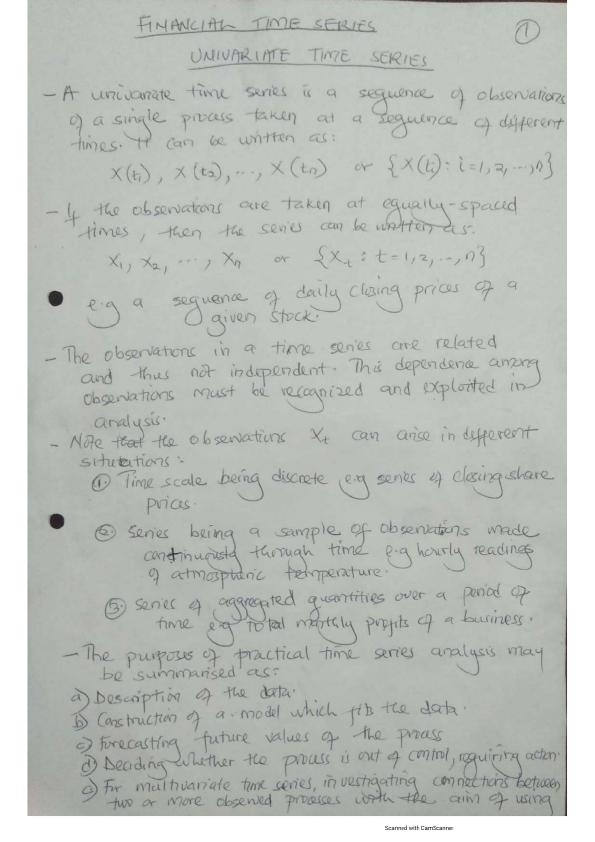 FINANCIAL TIME SERIES
①
UNIVARIATE TIME SERIES
- A univariate time series is a sequence of observations
of a single process taken at a sequence of different
times. It can be written as:
X(t₁), X(t₂), ..., X(tₙ) or {X(tᵢ): i=1,2,...,n}
- If the observations are taken at equally-spaced
times, then the series can be written as:
X₁, X₂, ..., Xₙ or {Xₜ : t=1,2,..,n}
e.g a sequence of daily closing prices of a
given stock.
- The observations in a time series are related
and thus not independent. This dependence among
observations must be recognized and exploited in
analysis.
- Note that the observations Xₜ can arise in different
situations:
① Time scale being discrete e.g series of closing share
prices.
② Series being a sample of observations made
continuously through time e.g hourly readings
of atmospheric temperature.
③ Series of aggregated quantities over a period of
time e.g total monthly profits of a business.
- The purposes of practical time series analysis may
be summarised as:
a) Description of the data.
b) Construction of a model which fits the data.
c) Forecasting future values of the process
d) Deciding whether the process is out of control, requiring action.
e) For multivariate time series, investigating connections between
two or more observed processes with the aim of using
Scanned with CamScanner